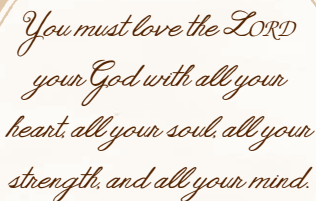 You must love the LORD
your God with all your
heart, all your soul, all your
strength, and all your mind.